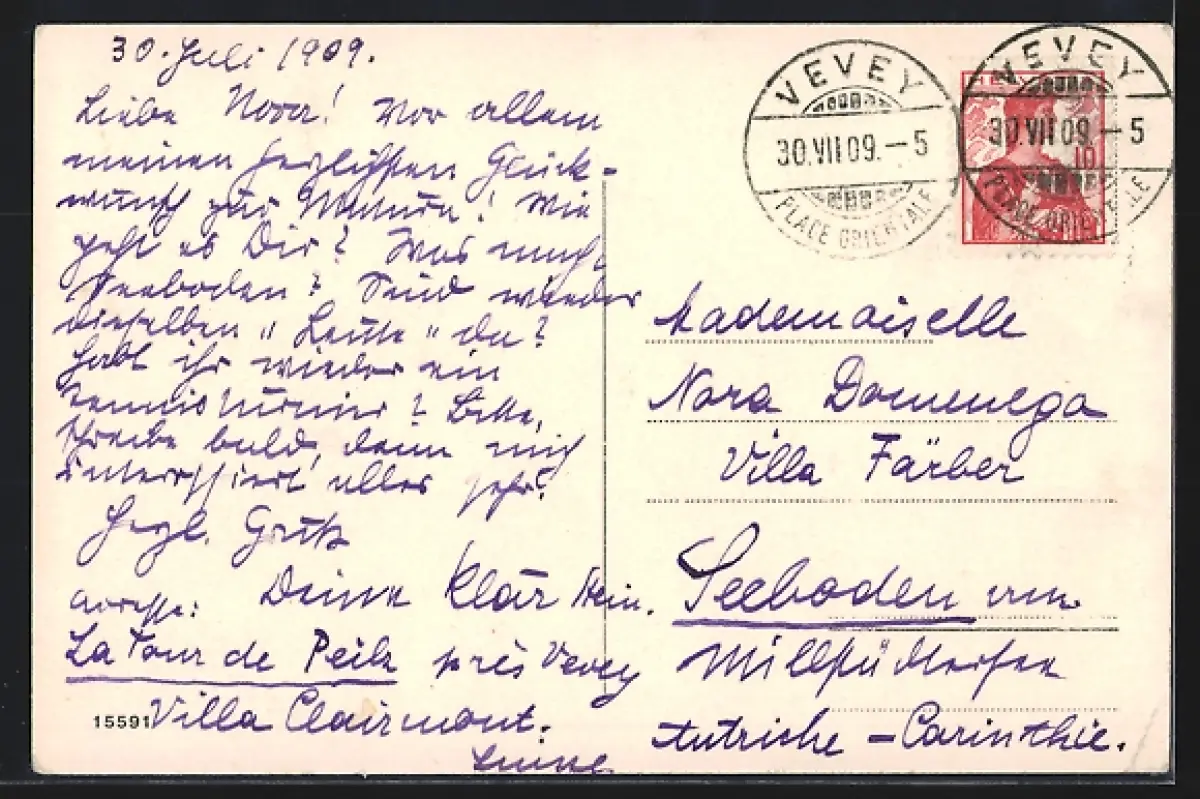 30. Juli 1909.
Liebe Nora! Vor allem
meinen herzlichsten Glück-
wunsch zur Matura! Wie
geht es Dir? Was macht
Seeboden? Sind wieder
dieselben "Leute" da?
Habt ihr wieder ein
Tennisturnier? Bitte,
schreibe bald, denn mich
interessiert alles sehr.
Herzl. Gruß
Deine Klär Stein.
Adresse:
La Tour de Peilz près Vevey
Villa Clairmont.
Suisse.
15591
VEVEY
30.VII.09.-5
PLACE ORIENTALE
VEVEY
30.VII.09.-5
PLACE ORIENTALE
10
Mademoiselle
Nora Domenega
Villa Färber
Seeboden am
Millstädtersee
Autriche - Carinthie.